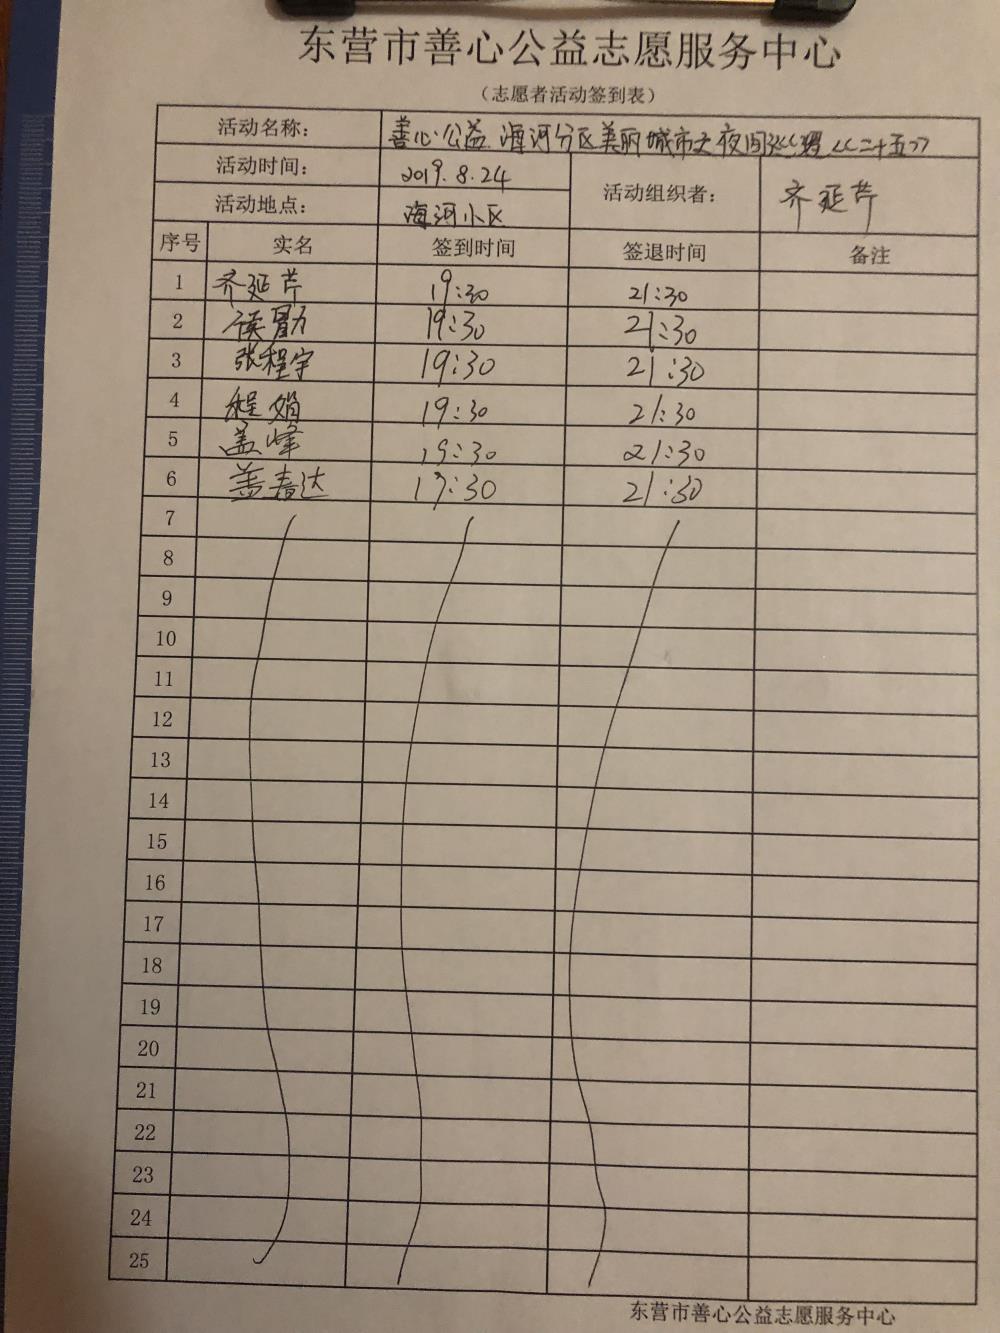 东营市善心公益志愿服务中心
（志愿者活动签到表）
活动名称： 善心公益 海河分区美丽城市之夜间巡逻《二十五》
活动时间： 2019.8.24 活动组织者： 齐延芹
活动地点： 海河小区
序号 实名 签到时间 签退时间 备注
1 齐延芹 19:30 21:30
2 侯勖 19:30 21:30
3 张程宇 19:30 21:30
4 程娟 19:30 21:30
5 盖峰 19:30 21:30
6 盖春达 19:30 21:30
7
8
9
10
11
12
13
14
15
16
17
18
19
20
21
22
23
24
25
东营市善心公益志愿服务中心